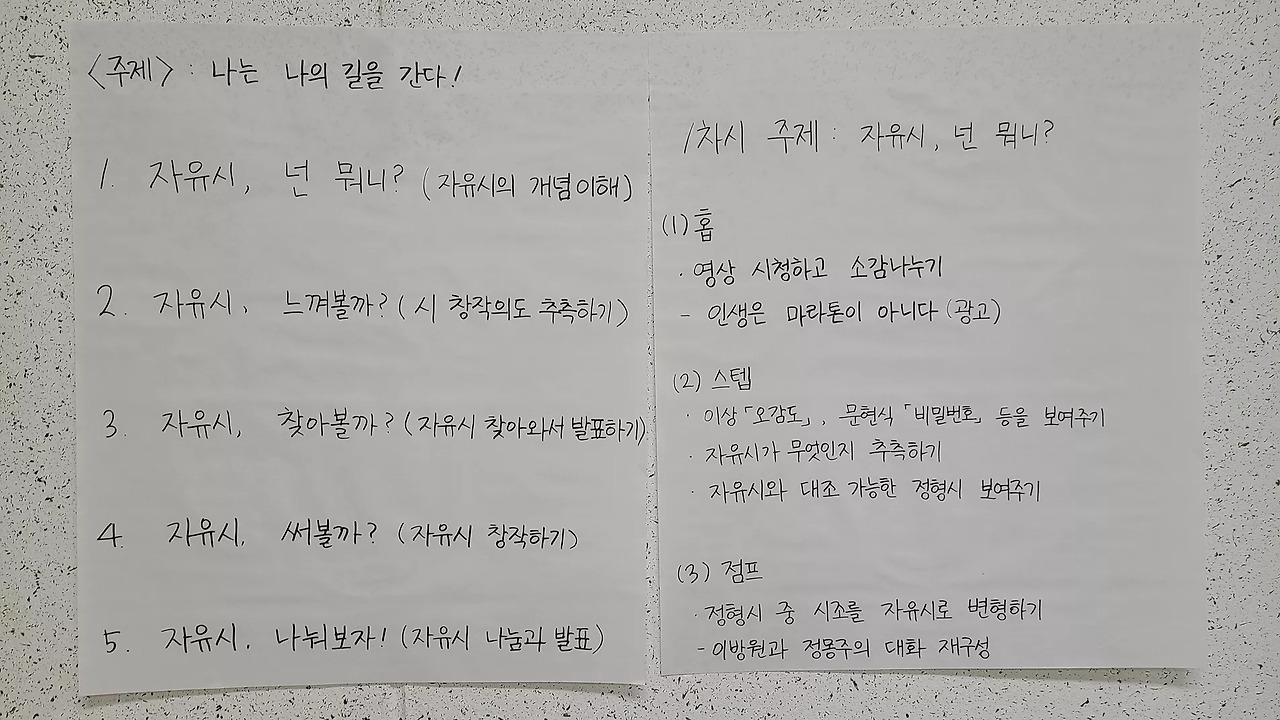 <주제> : 나는 나의 길을 간다!
1. 자유시, 넌 뭐니? (자유시의 개념이해)
2. 자유시, 느껴볼까? (시 창작의도 추측하기)
3. 자유시, 찾아볼까? (자유시 찾아와서 발표하기)
4. 자유시, 써볼까? (자유시 창작하기)
5. 자유시, 나눠보자! (자유시 나눔과 발표)
1차시 주제 : 자유시, 넌 뭐니?
(1) 홉
· 영상 시청하고 소감나누기
- 인생은 마라톤이 아니다 (광고)
(2) 스텝
· 이상「오감도」, 문현식「비밀번호」 등을 보여주기
· 자유시가 무엇인지 추측하기
· 자유시와 대조 가능한 정형시 보여주기
(3) 점프
· 정형시 중 시조를 자유시로 변형하기
- 이방원과 정몽주의 대화 재구성